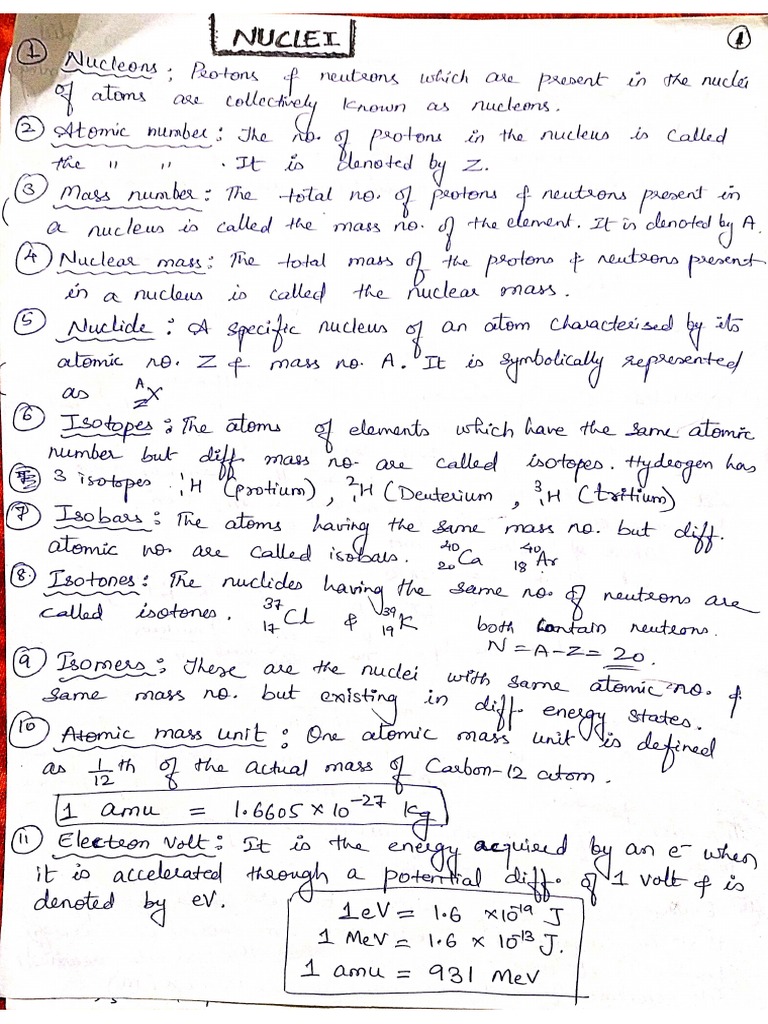 NUCLEI
1
① Nucleons : Protons & neutrons which are present in the nuclei
of atoms are collectively known as nucleons.
② Atomic number : The no. of protons in the nucleus is called
the " " . It is denoted by Z.
③ Mass number : The total no. of protons & neutrons present in
a nucleus is called the mass no. of the element. It is denoted by A.
④ Nuclear mass : The total mass of the protons & neutrons present
in a nucleus is called the nuclear mass.
⑤ Nuclide : A specific nucleus of an atom characterised by its
atomic no. Z & mass no. A. It is symbolically represented
as ᴬ_Z X
⑥ Isotopes : The atoms of elements which have the same atomic
number but diff mass no. are called isotopes. Hydrogen has
3 isotopes ¹₁H (protium), ²₁H (Deuterium , ³₁H (tritium)
⑦ Isobars : The atoms having the same mass no. but diff.
atomic no. are called isobars. ⁴⁰₂₀Ca ⁴⁰₁₈Ar
⑧ Isotones : The nuclides having the same no. of neutrons are
called isotones. ³⁷₁₇Cl & ³⁹₁₉K both contain neutrons.
N = A-Z = 20.
⑨ Isomers : These are the nuclei with same atomic no. &
same mass no. but existing in diff. energy states.
⑩ Atomic mass unit : One atomic mass unit is defined
as 1/12 th of the actual mass of Carbon-12 atom.
1 amu = 1.6605 × 10⁻²⁷ kg
⑪ Electron Volt : It is the energy acquired by an e⁻ when
it is accelerated through a potential diff. of 1 volt & is
denoted by eV.
1 eV = 1.6 × 10⁻¹⁹ J
1 MeV = 1.6 × 10⁻¹³ J.
1 amu = 931 MeV